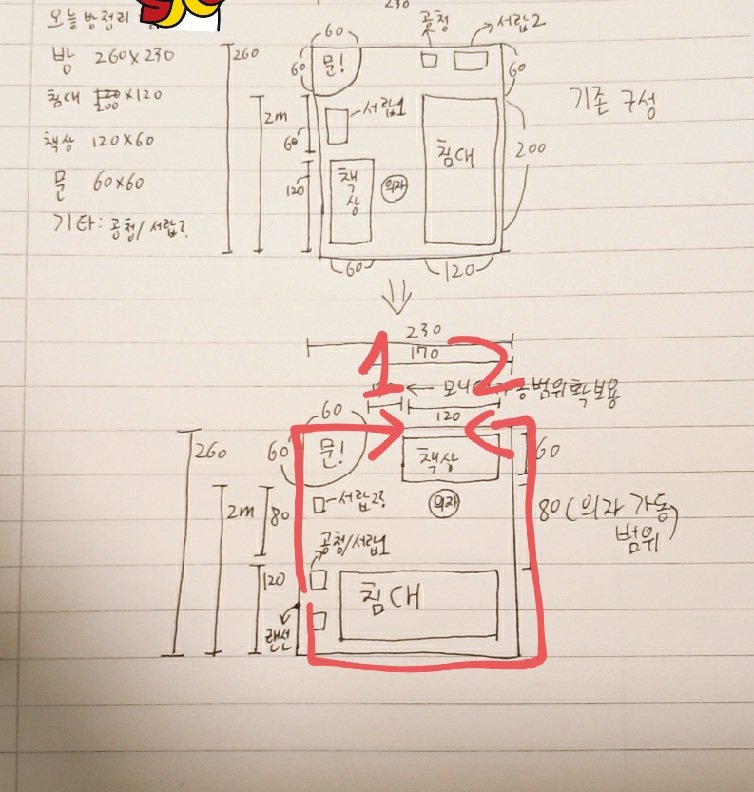 오늘 방정리
방 260×230
침대 200×120
책상 120×60
문 60×60
기타: 공청/서랍2
230
60
공청
서랍2
260
60
문!
60
2m
서랍1
60
침대
200
기존 구성
120
책상
의자
60
120
230
1 2
170
범위확보용
120
60
문!
60
책상
60
260
서랍2
의자
80 (의자 가동 범위)
2m
80
공청/서랍1
120
침대
랜선